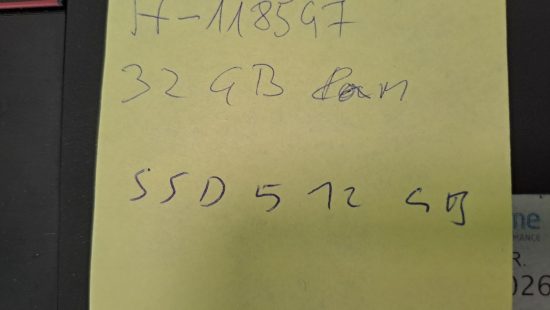 H-118597
32 GB Ram
SSD 512 GB
me
MANCE
R.
026